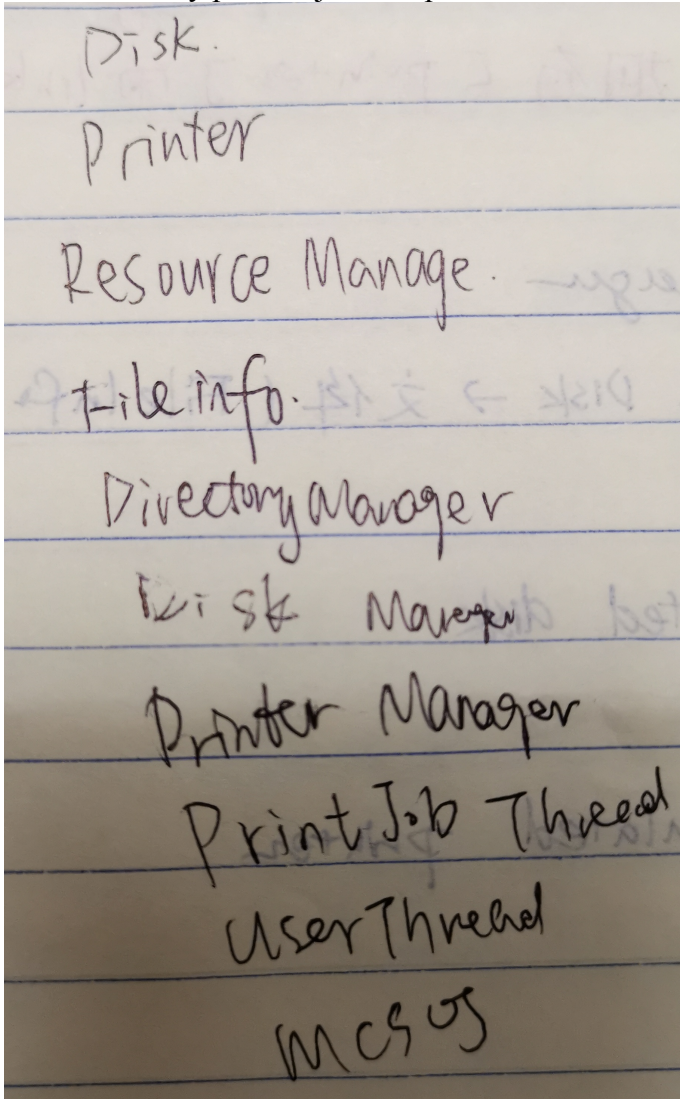 Disk.
Printer
Resource Manage.
Fileinfo.
DirectoryManager
Disk Manager
Printer Manager
PrintJob Thread
UserThread
mcsos